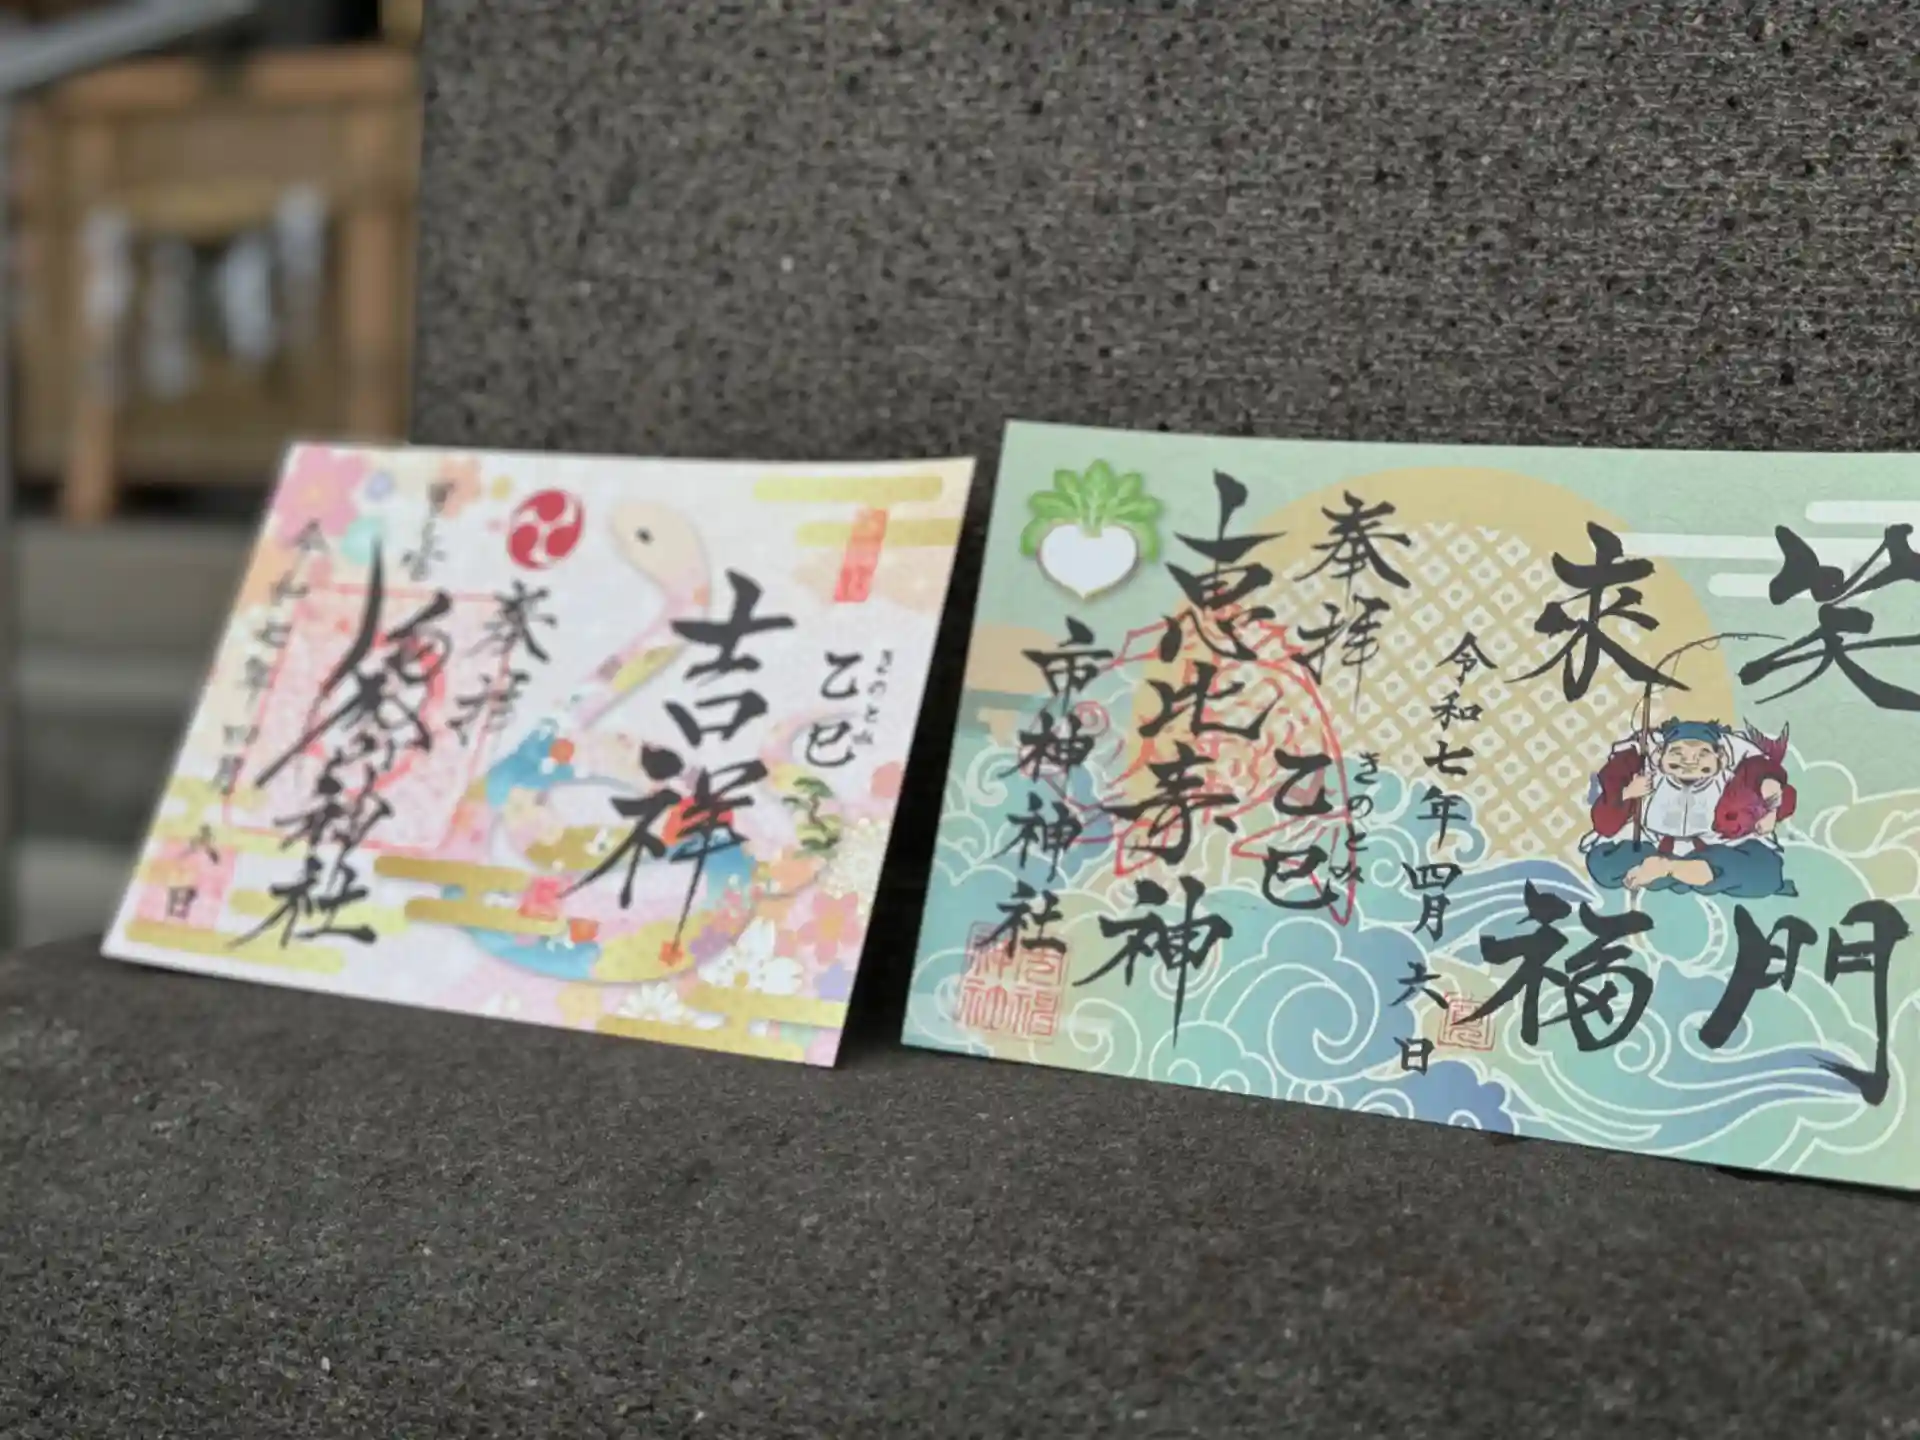 きのとみ
乙巳
吉祥
奉拝
神社
令和七年四月六日
笑門
来福
令和七年四月六日
きのとみ
乙巳
奉拝
恵比寿神
市神神社